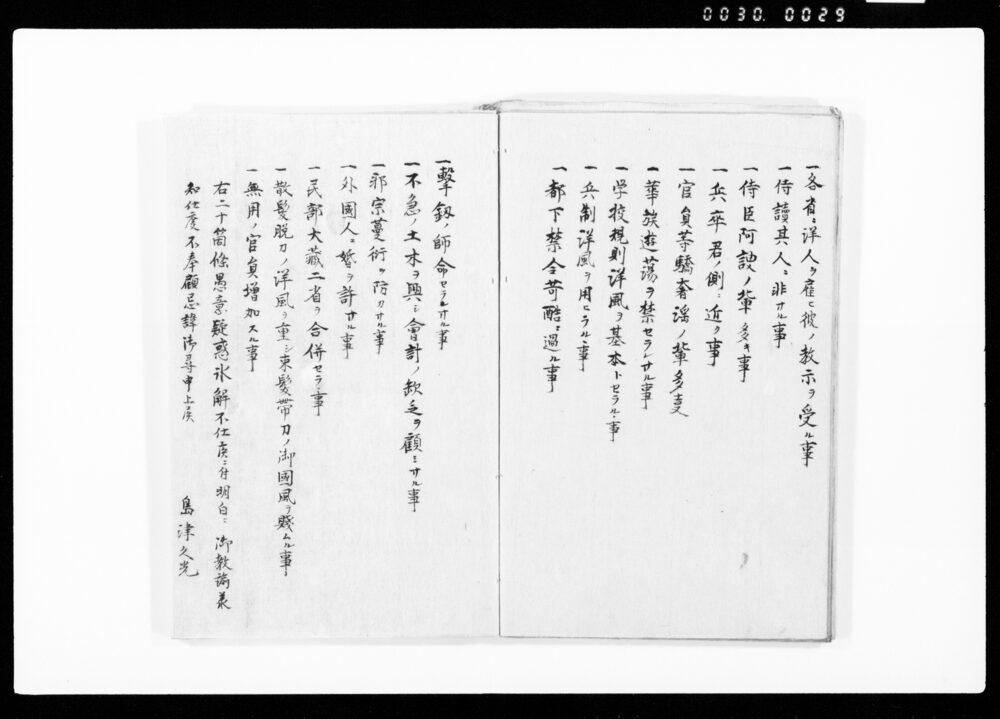 0030. 0029
一各省ニ洋人ヲ雇ヒ彼ノ教示ヲ受ル事
一侍讀其人ニ非サル事
一侍臣阿諛ノ輩多キ事
一兵卒君ノ側ニ近ク事
一官員等驕奢淫ノ輩多キ事
一華族遊蕩ヲ禁セラレサル事
一学校規則洋風ヲ基本トセラルヽ事
一兵制洋風ヲ用ヒラルヽ事
一都下禁令苛酷ニ過ル事
一擊劔ノ師命セラレサル事
一不急ノ土木ヲ興シ會計ノ欽乏ヲ顧ミサル事
一邪宗蔓衍ヲ防カサル事
一外國人ニ婚ヲ許サル事
一民部大藏二省ヲ合併セラル事
一散髮脱刀ノ洋風ヲ重シ束髮帯刀ノ御國風ヲ賤ムル事
一無用ノ官員増加スル事
右二十箇條愚意疑惑氷解不仕候ニ付明白ニ御教諭承
知仕度不奉顧忌諱御尋申上候
島津久光